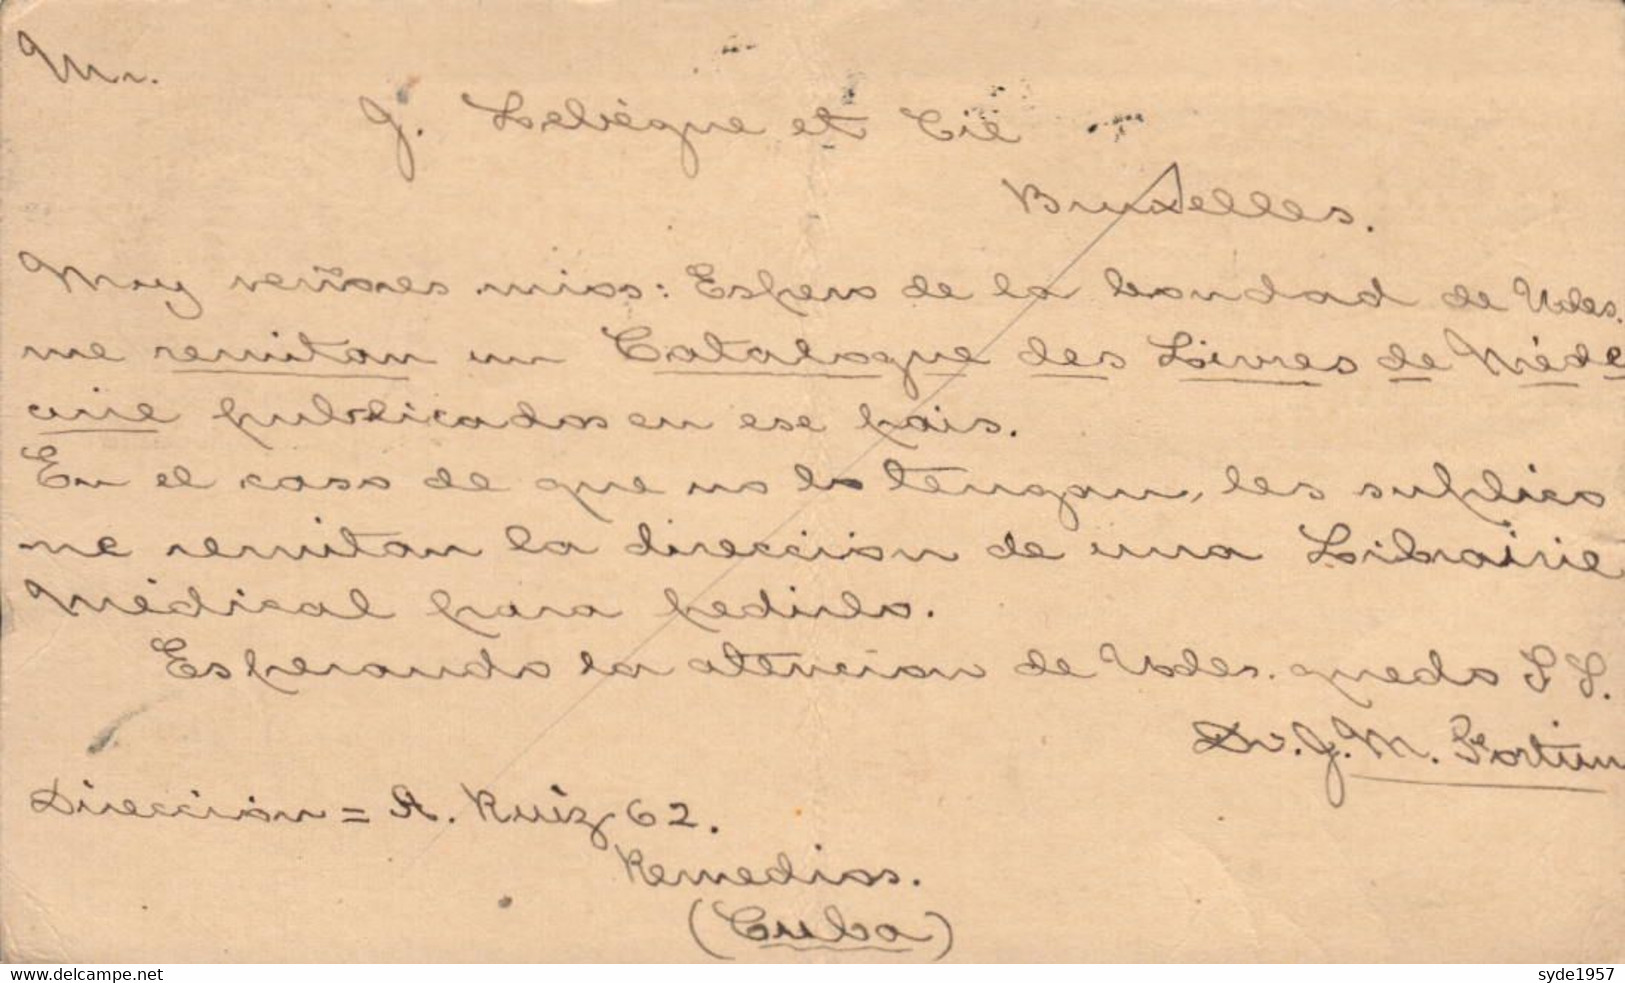 Mr.
J. Lebègue et Cie
Bruxelles.
Muy señores mios: Espero de la bondad de Udes.
me remitan un Catalogue des Livres de Méde
cine publicados en ese pais.
En el caso de que no lo tengan, les suplico
me remitan la direccion de una Librairie
Médical para pedirlo.
Esperando la atencion de Udes. quedo S S.
Dr. J. M. Fortun
Direccion = A. Ruiz 62.
Remedios.
(Cuba)
www.delcampe.net
syde1957